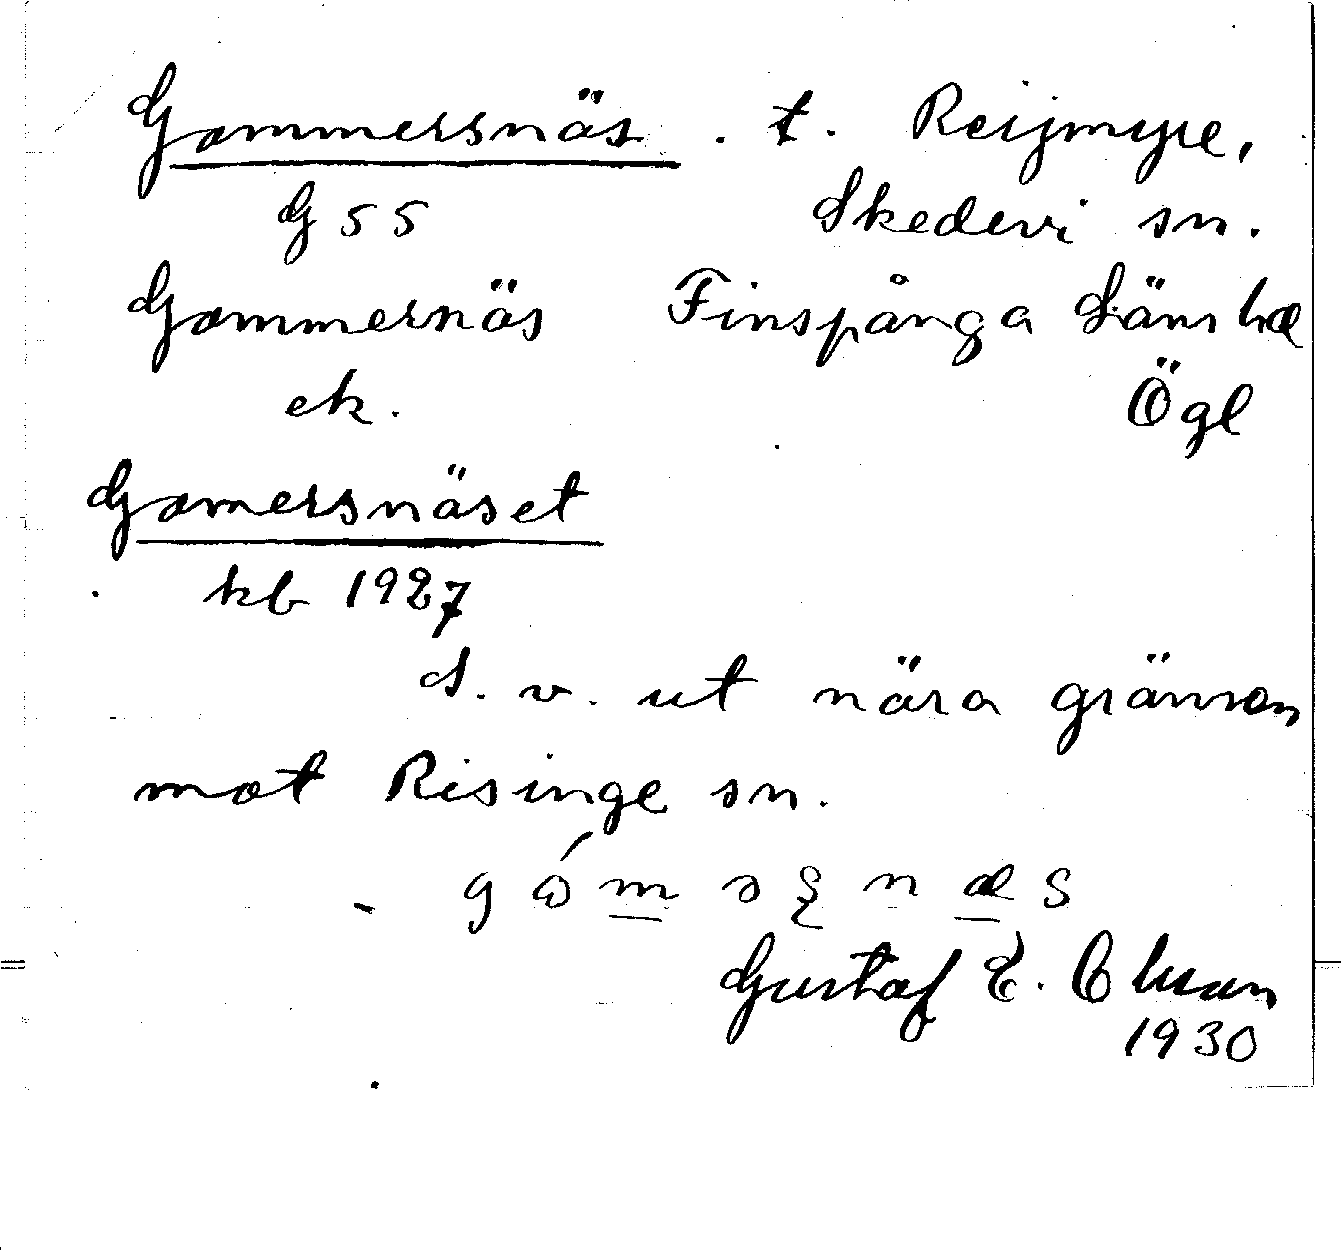 Gommersnäs . t. Reijmyre,
G 55 Skedevi sn.
Gommernäs Finspånga Läns hd
ek. Ögl
Gomersnäset
kb 1927
S. v. ut nära gränsen
mot Risinge sn.
Gustaf E. Olsson
1930